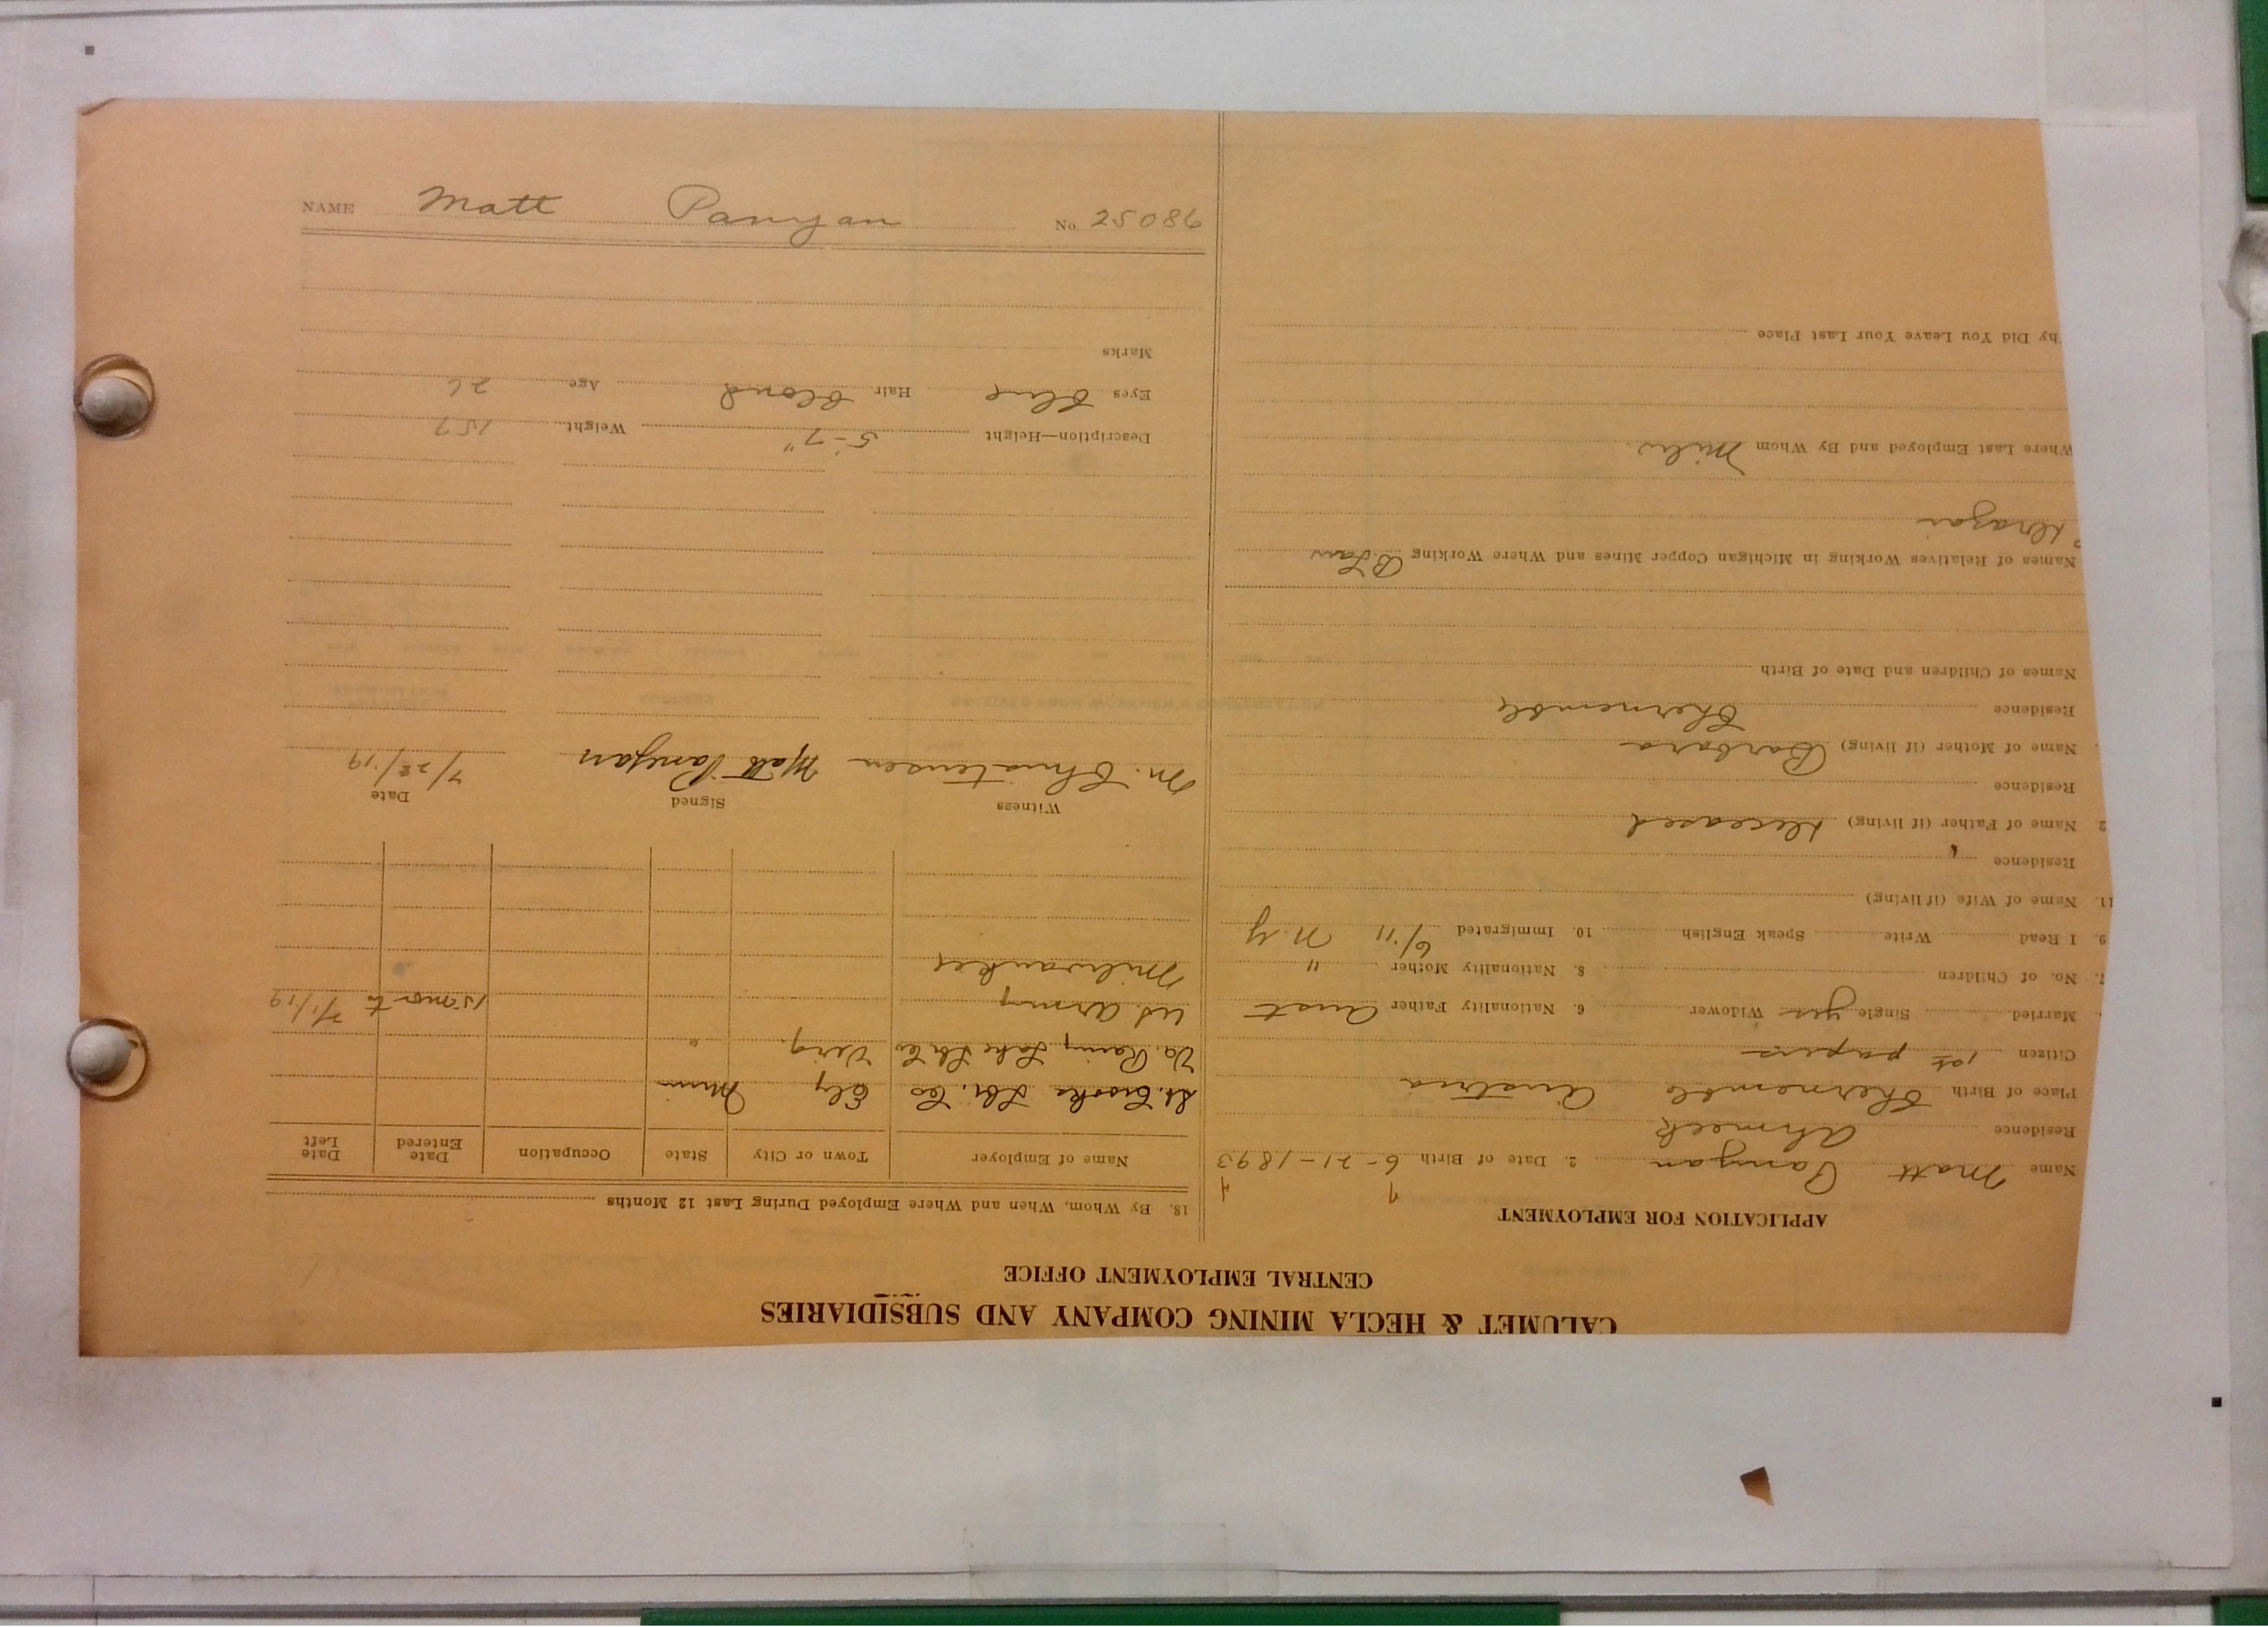 CALUMET & HECLA MINING COMPANY AND SUBSIDIARIES
CENTRAL EMPLOYMENT OFFICE
APPLICATION FOR EMPLOYMENT
Name Matt Panyan 2. Date of Birth 6-21-1893
Residence Ahmeek
Place of Birth Chernemble Austria
Citizen 1st papers
Married Single yes Widower 6. Nationality Father Aust
7. No. of Children 8. Nationality Mother "
9. I Read Write Speak English 10. Immigrated 6/11 N.Y
11. Name of Wife (if living)
Residence
2 Name of Father (if living) Deceased
Residence
Name of Mother (if living) Barbara
Residence Chernemble
Names of Children and Date of Birth
Names of Relatives Working in Michigan Copper Mines and Where Working
Where Last Employed and By Whom
hy Did You Leave Your Last Place
18. By Whom, When and Where Employed During Last 12 Months
Name of Employer Town or City State Occupation Date Entered Date Left
St. Croske Lbr. Co Ely Minn
Va. Rainy Lake Lbr Co Virg. "
U.S. Army 15 mos to 7/1/19
Milwaukee
Witness Signed Date
M. Christensen Matt Panyan 7/28/19
Description—Height 5-7" Weight 157
Eyes Blue Hair Blond Age 26
Marks
NAME Matt Panyan No. 25086